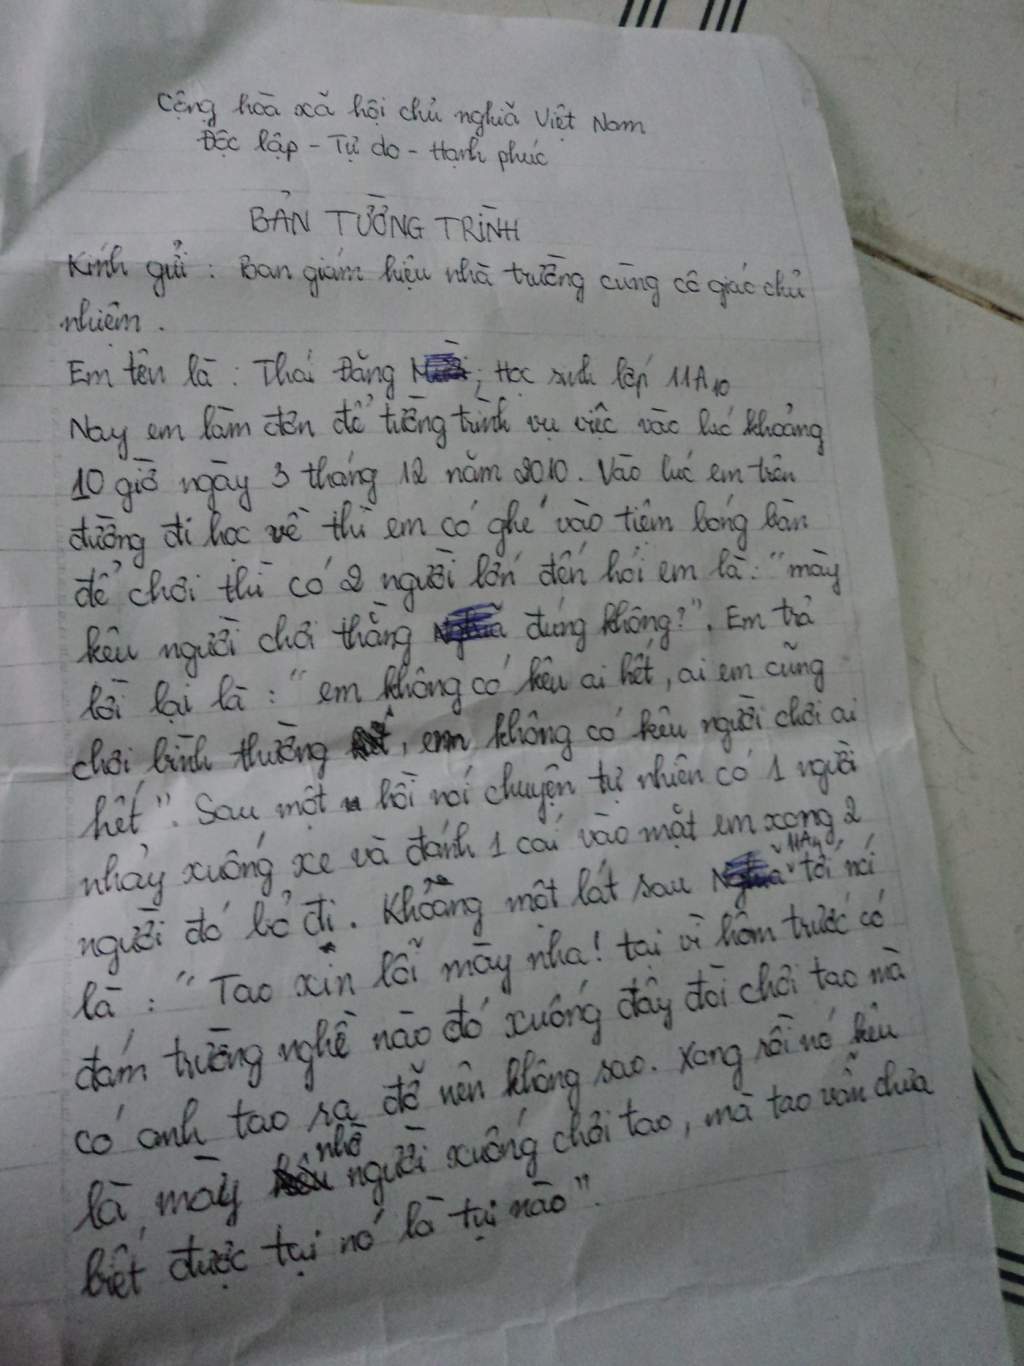 Cộng hòa xã hội chủ nghĩa Việt Nam
Độc lập - Tự do - Hạnh phúc
BẢN TƯỜNG TRÌNH
Kính gửi : Ban giám hiệu nhà trường cùng cô giáo chủ
nhiệm .
Em tên là : Thái Đăng ; Học sinh lớp 11A10
Nay em làm đơn để tường trình vụ việc vào lúc khoảng
10 giờ ngày 3 tháng 12 năm 2010. Vào lúc em trên
đường đi học về thì em có ghé vào tiệm bóng bàn
để chơi thì có 2 người lớn đến hỏi em là : "mày
kêu người chơi thằng đúng không?". Em trả
lời lại là : "em không có kêu ai hết, ai em cũng
chơi bình thường , em không có kêu người chơi ai
hết". Sau một hồi nói chuyện tự nhiên có 1 người
nhảy xuống xe và đánh 1 cái vào mặt em xong 2
người đó bỏ đi. Khoảng một lát sau 11A10 tới nói
là : "Tao xin lỗi mày nha! tại vì hôm trước có
đám trường nghề nào đó xuống đây đòi chơi tao mà
có anh tao ra đỡ nên không sao. Xong rồi nó kêu
là mày nhờ người xuống chơi tao, mà tao vẫn chưa
biết được tụi nó là tụi nào".